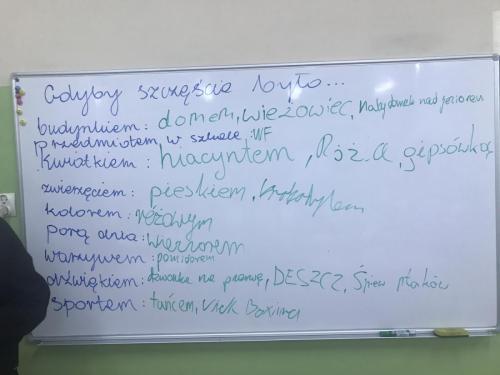 Gdyby szczęście było...
budynkiem: domem, wieżowiec, mały domek nad jeziorem
przedmiotem w szkole: WF
kwiatkiem: hiacyntem, Róża, gipsówką
zwierzęciem: pieskiem, krokodylem
kolorem: różowym
porą dnia: wieczorem
warzywem: pomidorem
dźwiękiem: dzwonka na przerwę, DESZCZ, Śpiew ptaków
sportem: tańcem, kick Boxing